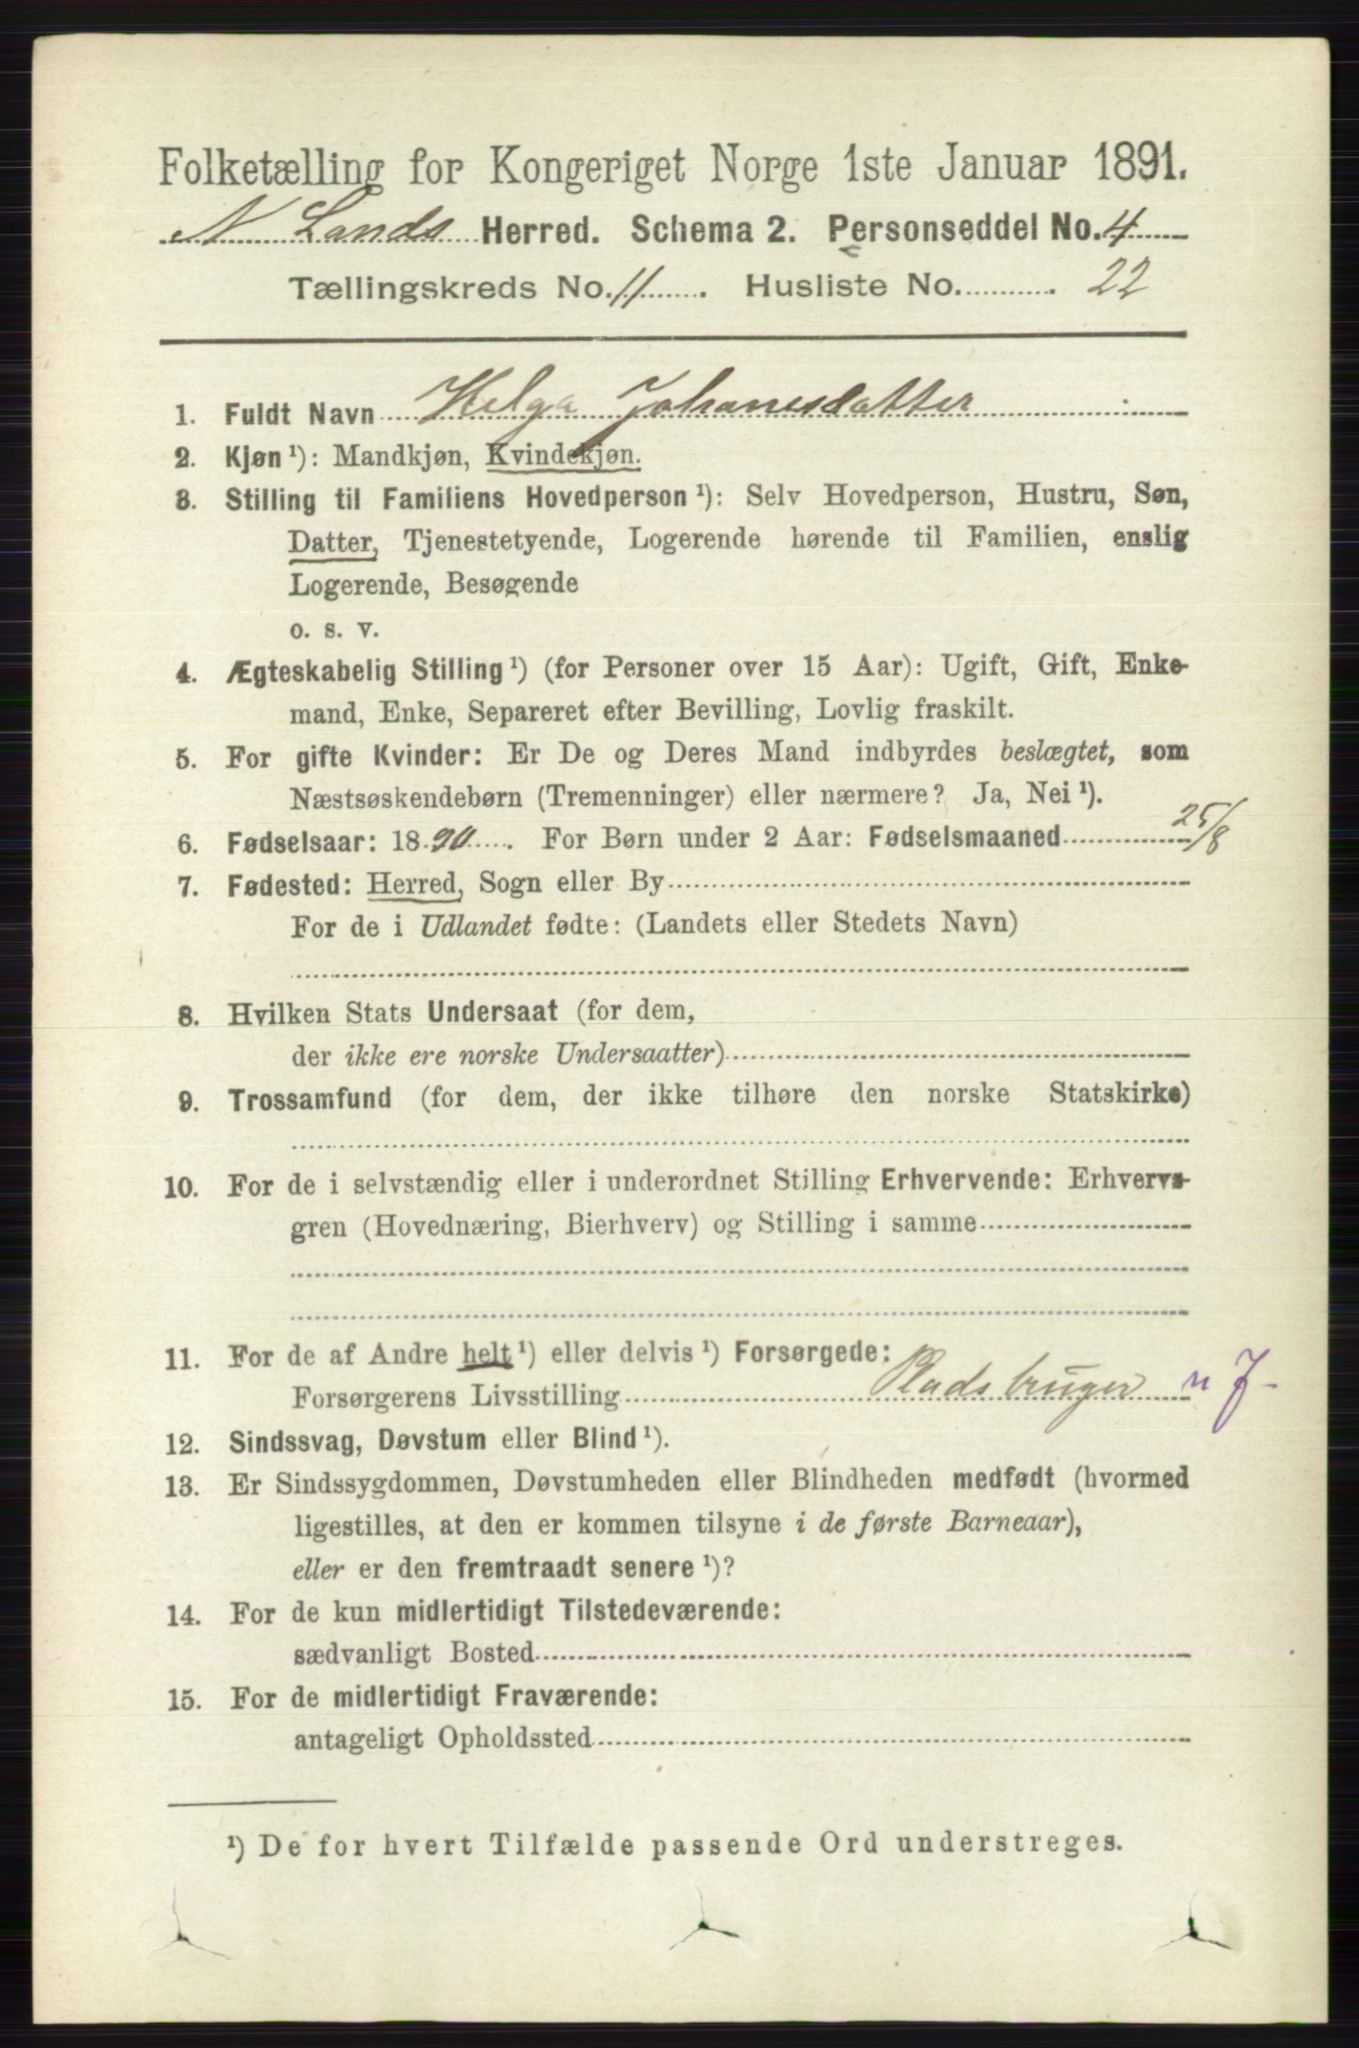 Folketælling for Kongeriget Norge 1ste Januar 1891.
N Lands Herred. Schema 2. Personseddel No. 4
Tællingskreds No. 11. Husliste No. 22
1. Fuldt Navn Helga Johanesdatter
2. Kjøn ¹): Mandkjøn, Kvindekjøn.
3. Stilling til Familiens Hovedperson ¹): Selv Hovedperson, Hustru, Søn,
Datter, Tjenestetyende, Logerende hørende til Familien, enslig
Logerende, Besøgende
o. s. v.
4. Ægteskabelig Stilling ¹) (for Personer over 15 Aar): Ugift, Gift, Enke-
mand, Enke, Separeret efter Bevilling, Lovlig fraskilt.
5. For gifte Kvinder: Er De og Deres Mand indbyrdes beslægtet, som
Næstsøskendebørn (Tremenninger) eller nærmere? Ja, Nei ¹).
6. Fødselsaar: 1890. For Børn under 2 Aar: Fødselsmaaned 25/8
7. Fødested: Herred, Sogn eller By
For de i Udlandet fødte: (Landets eller Stedets Navn)
8. Hvilken Stats Undersaat (for dem,
der ikke ere norske Undersaatter)
9. Trossamfund (for dem, der ikke tilhøre den norske Statskirke)
10. For de i selvstændig eller i underordnet Stilling Erhvervende: Erhvervs-
gren (Hovednæring, Bierhverv) og Stilling i samme
11. For de af Andre helt ¹) eller delvis ¹) Forsørgede:
Forsørgerens Livsstilling Pladsbruger
12. Sindssvag, Døvstum eller Blind ¹).
13. Er Sindssygdommen, Døvstumheden eller Blindheden medfødt (hvormed
ligestilles, at den er kommen tilsyne i de første Barneaar),
eller er den fremtraadt senere ¹)?
14. For de kun midlertidigt Tilstedeværende:
sædvanligt Bosted
15. For de midlertidigt Fraværende:
antageligt Opholdssted
¹) De for hvert Tilfælde passende Ord understreges.